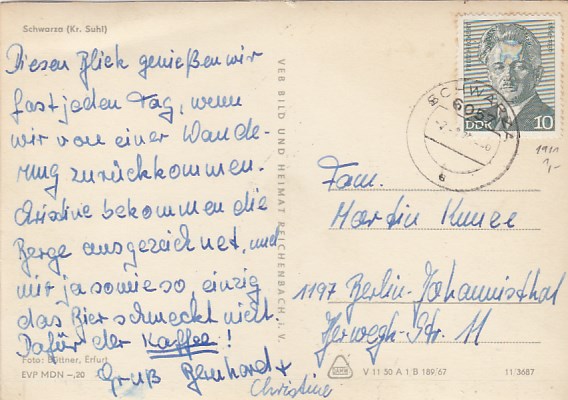 Schwarza (Kr. Suhl)
Diesen Blick genießen wir
fast jeden Tag, wenn
wir von einer Wande-
rung zurückkommen.
Christine bekommen die
Berge ausgezeichnet, und
mir ja sowieso, einzig
das Bier schmeckt nicht.
Dafür der Kaffee!
Foto: Büttner, Erfurt
EVP MDN –,20
Gruß Bernhard +
Christine
VEB BILD UND HEIMAT REICHENBACH i. V.
SCHWARZA
DDR 10
1911
1,-
Fam.
Martin Kunze
1197 Berlin-Johannisthal
Herwegh-Str. 11
V 11 50 A 1 B 189/67
11/3687